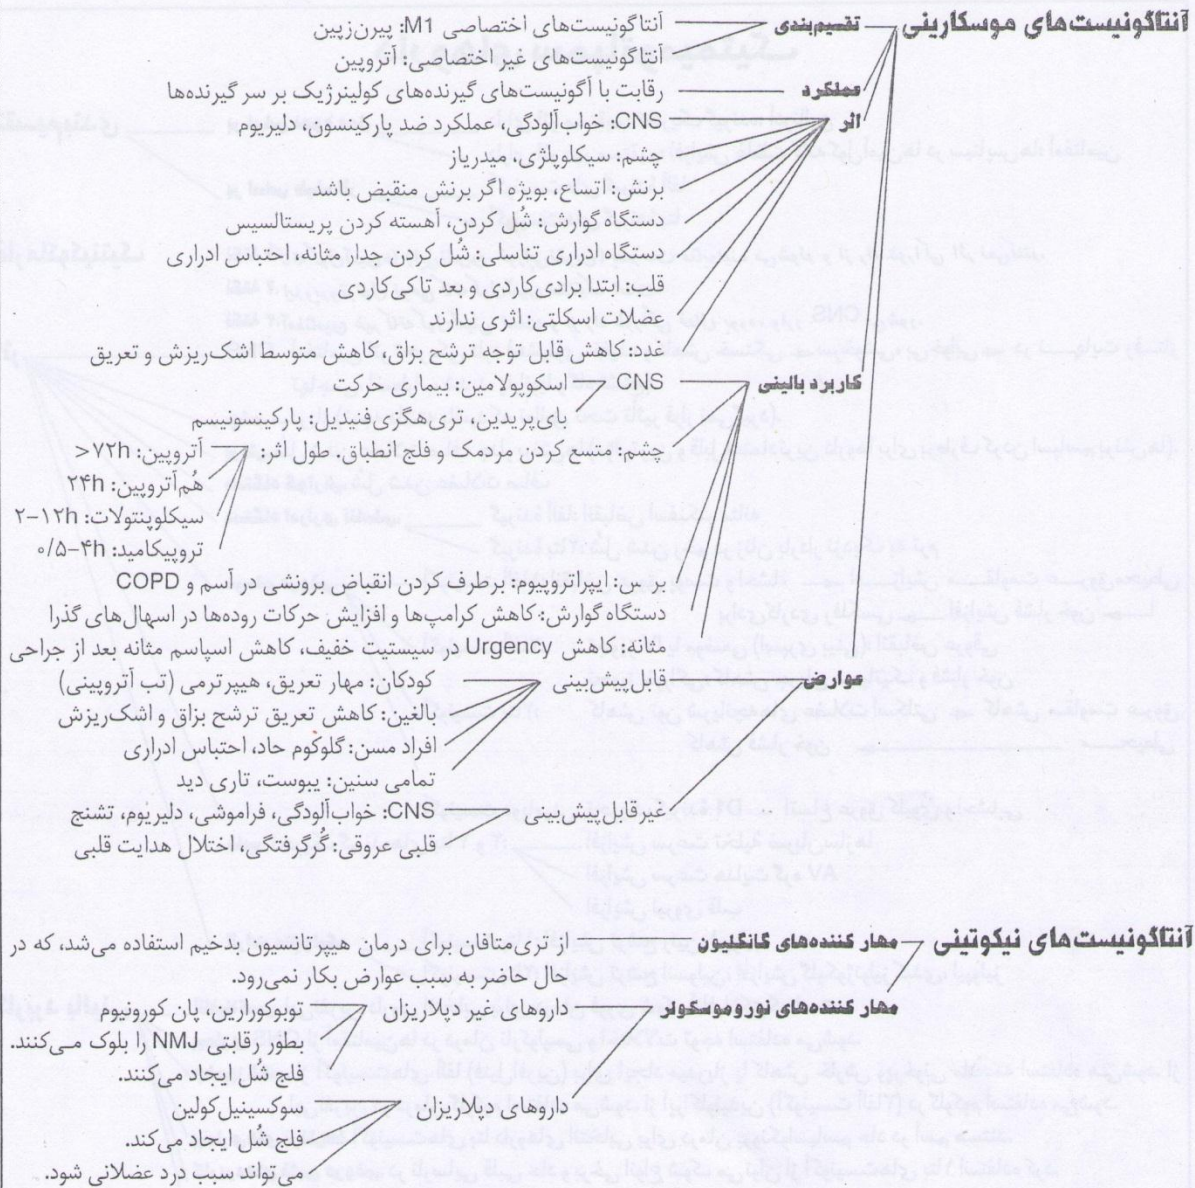 آنتاگونیست‌های موسکارینی
تقسیم‌بندی
آنتاگونیست‌های اختصاصی M1: پیرن‌زپین
آنتاگونیست‌های غیر اختصاصی: آتروپین
عملکرد
رقابت با آگونیست‌های گیرنده‌های کولینرژیک بر سر گیرنده‌ها
اثر
CNS: خواب‌آلودگی، عملکرد ضد پارکینسون، دلیریوم
چشم: سیکلوپلژی، میدریاز
برنش: اتساع، بویژه اگر برنش منقبض باشد
دستگاه گوارش: شُل کردن، آهسته کردن پریستالسیس
دستگاه ادراری تناسلی: شُل کردن جدار مثانه، احتباس ادراری
قلب: ابتدا برادی‌کاردی و بعد تاکی‌کاردی
عضلات اسکلتی: اثری ندارند
غدد: کاهش قابل توجه ترشح بزاق، کاهش متوسط اشک‌ریزش و تعریق
کاربرد بالینی
CNS
اسکوپولامین: بیماری حرکت
بای‌پریدین، تری‌هگزی‌فنیدیل: پارکینسونیسم
چشم: متسع کردن مردمک و فلج انطباق. طول اثر:
آتروپین: ۷۲h<
هُم‌آتروپین: ۲۴h
سیکلوپنتولات: ۲–۱۲h
تروپیکامید: ۰/۵–۴h
تنفسی: ایپراتروپیوم: برطرف کردن انقباض برونشی در آسم و COPD
دستگاه گوارش: کاهش کرامپ‌ها و افزایش حرکات روده‌ها در اسهال‌های گذرا
مثانه: کاهش Urgency در سیستیت خفیف، کاهش اسپاسم مثانه بعد از جراحی
عوارض
قابل‌پیش‌بینی
کودکان: مهار تعریق، هیپرترمی (تب آتروپینی)
بالغین: کاهش تعریق ترشح بزاق و اشک‌ریزش
افراد مسن: گلوکوم حاد، احتباس ادراری
تمامی سنین: یبوست، تاری دید
غیرقابل‌پیش‌بینی
CNS: خواب‌آلودگی، فراموشی، دلیریوم، تشنج
قلبی عروقی: گُرگرفتگی، اختلال هدایت قلبی
آنتاگونیست‌های نیکوتینی
مهار کننده‌های گانگلیون
از تری متافان برای درمان هیپرتانسیون بدخیم استفاده می‌شد، که در
حال حاضر به سبب عوارض بکار نمی‌رود.
مهار کننده‌های نوروموسکولر
داروهای غیر دپلاریزان
توبوکورارین، پان کورونیوم
بطور رقابتی NMJ را بلوک می‌کنند.
فلج شُل ایجاد می‌کنند.
داروهای دپلاریزان
سوکسینیل‌کولین
فلج شُل ایجاد می‌کند.
می‌تواند سبب درد عضلانی شود.